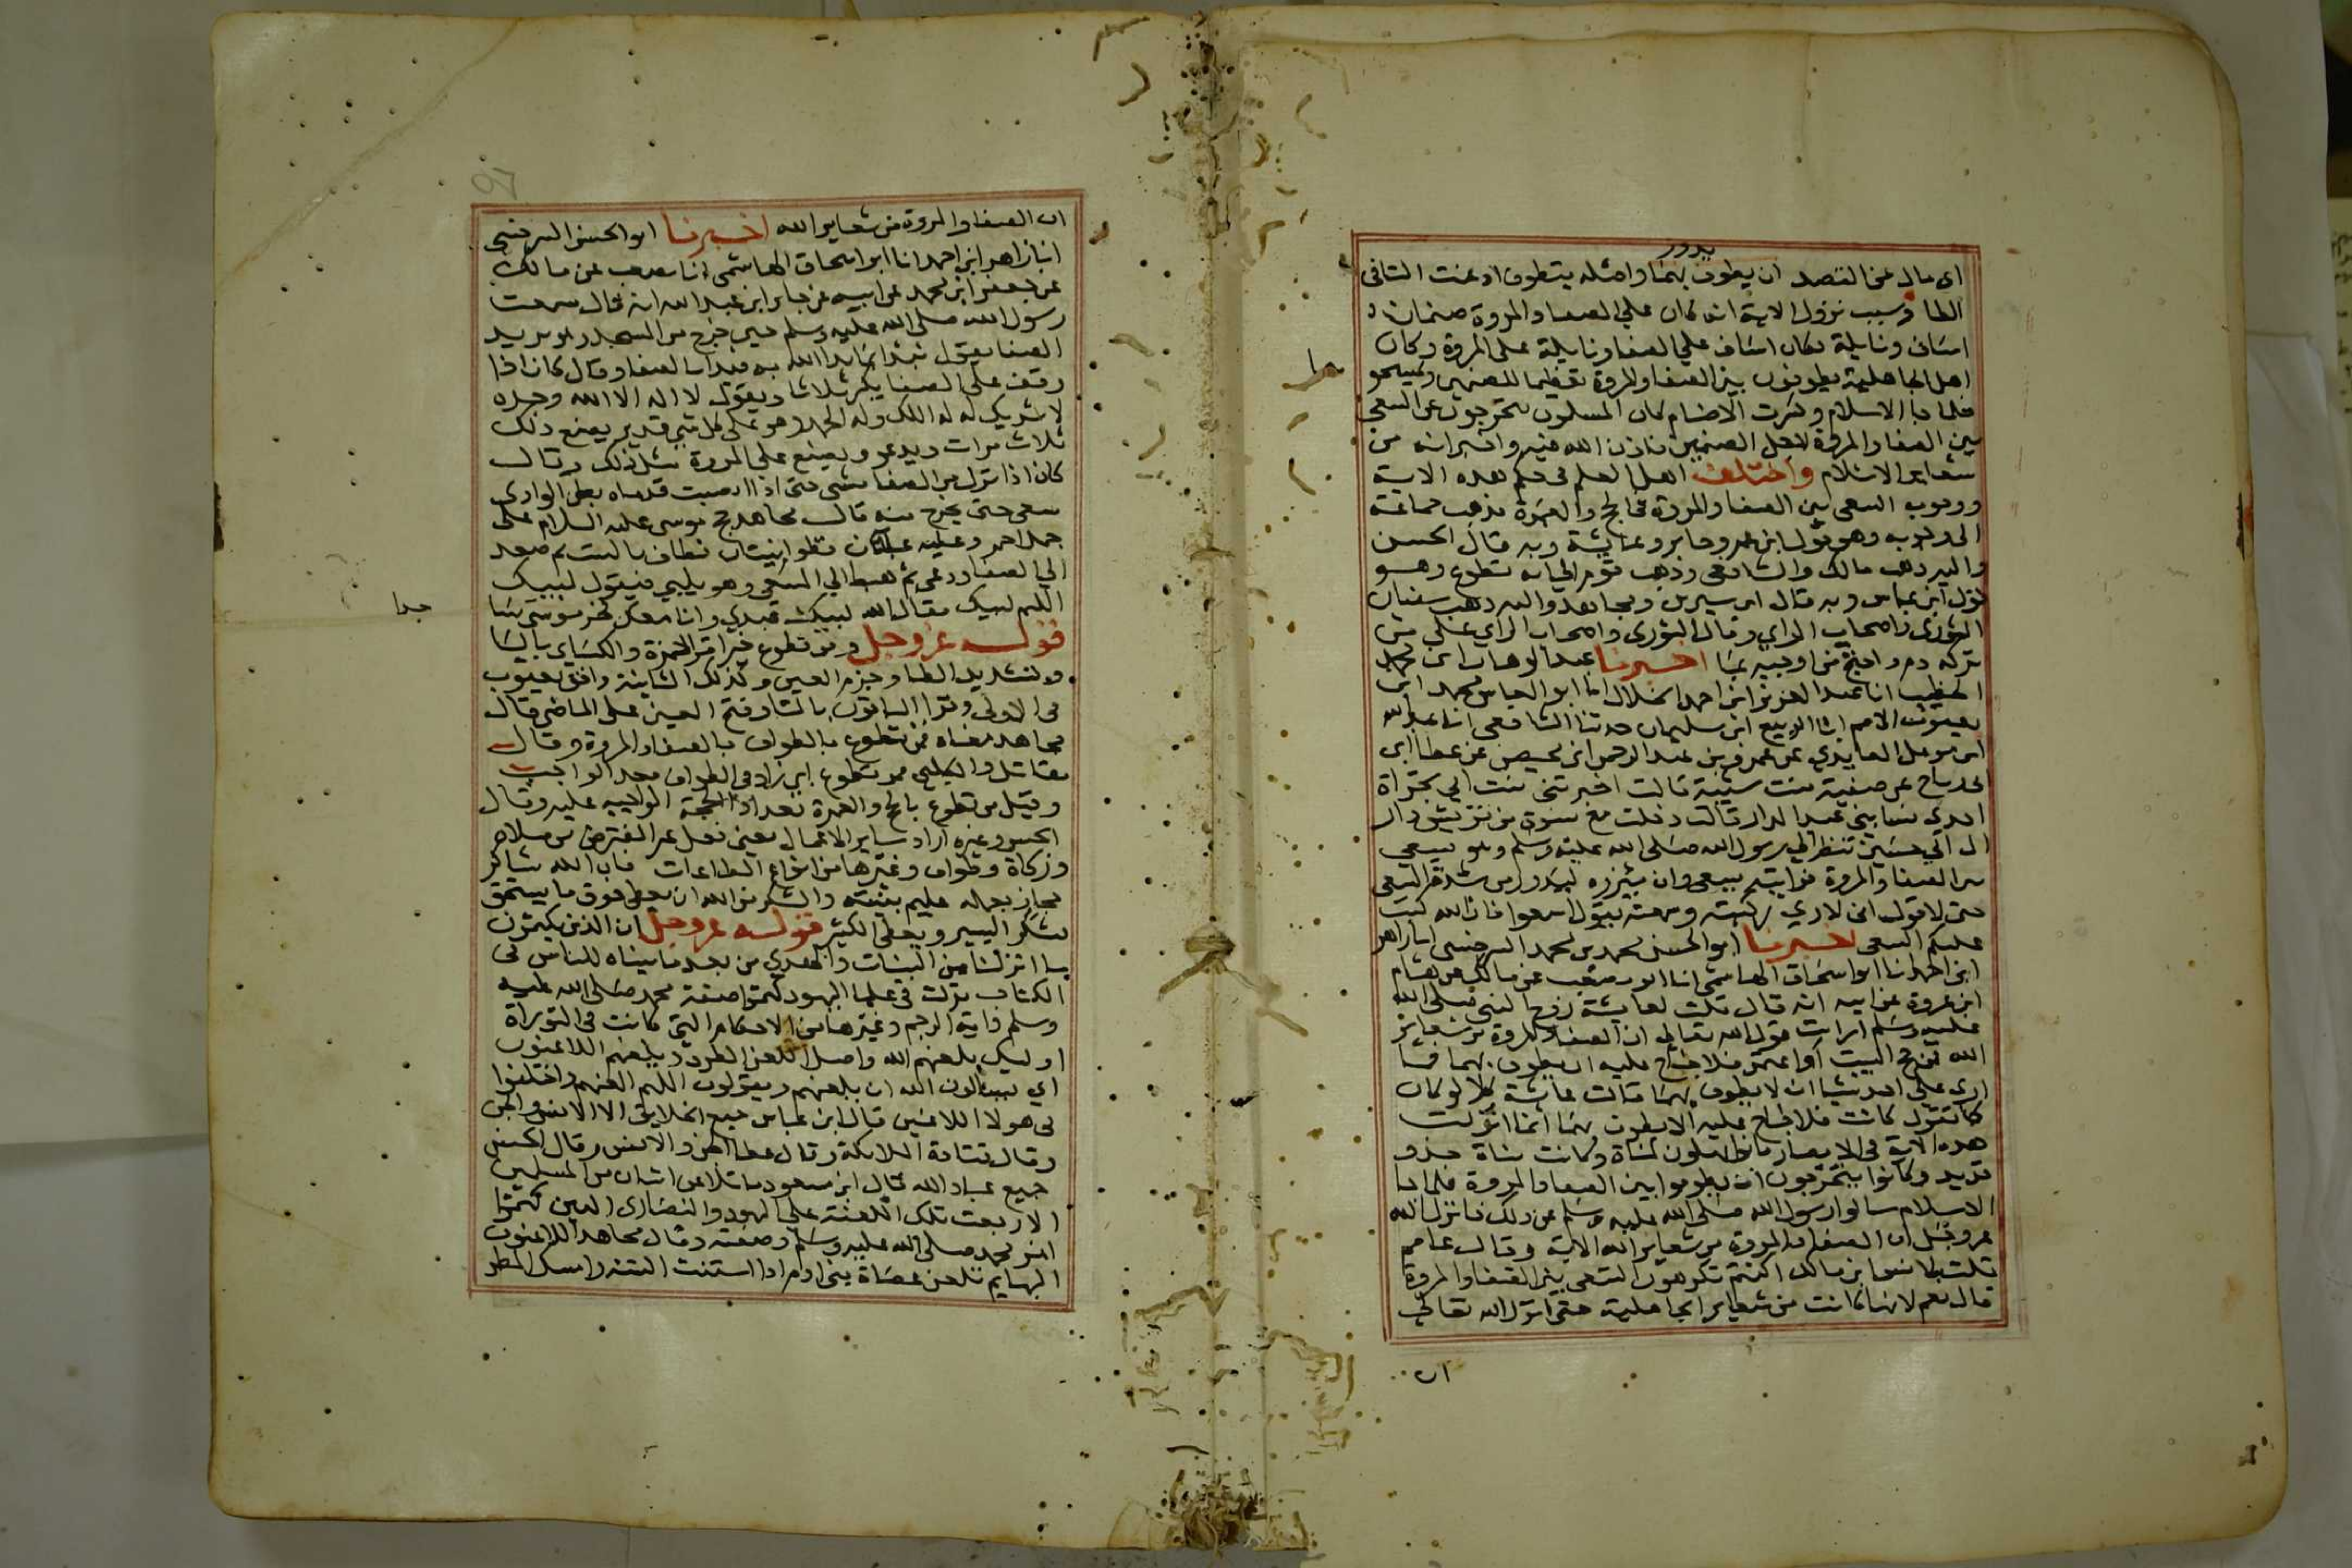 يدور
اى مال عن القصد ان يطوف بهما واصله يتطوف ادغمت التا فى
الطا وسبب نزول الاية انه كان على الصفا والمروة صنمان
اساف ونايلة فكان اساف على الصفا ونايلة على المروة وكان
اهل الجاهلية يطوفون بين الصفا والمروة تعظيما للصنمين
فلما جا الاسلام وكسرت الاصنام كان المسلمون يتحرجون عن السعى
بين الصفا والمروة لاجل الصنمين فاذن الله فيه واخبر انه من
شعاير الاسلام واختلف اهل العلم فى حكم هذه الاية
ووجوب السعى بين الصفا والمروة فى الحج والعمرة فذهب جماعة
الى وجوبه وهو قول ابن عمر وجابر وعايشة وبه قال الحسن
واليه ذهب مالك والشافعى وذهب قوم الى انه تطوع وهو
قول ابن عباس وبه قال ابن سيرين ومجاهد واليه ذهب سفيان
الثورى واصحاب الراي وقال الثورى واصحاب الراي على من
تركه دم واحتج من اوجبه بما اخبرنا عبد الوهاب ابن محمد
الخطيب انا عبد العزيز ابن احمد الخلال انا ابو العباس محمد ابن
يعقوب الاصم انا الربيع ابن سليمان حدثنا الشافعى انا عبد الله
ابن مومل العايذي عن عمرو بن عبد الرحمن ابن محيصن عن عطا ابن
ابى رباح عن صفية بنت شيبة قالت اخبرتنى بنت ابى تجراة
احدى نسا بنى عبد الدار قالت دخلت مع نسوة من قريش دار
ال ابي حسين ننظر الى رسول الله صلى الله عليه وسلم وهو يسعى
بين الصفا والمروة فرايته يسعى وان ميزره ليدور من شدة السعى
حتى لاقول انى لاري ركبته وسمعته يقول اسعوا فان الله كتب
عليكم السعى اخبرنا ابو الحسن محمد بن محمد السرخسى انا زاهر
ابن احمد انا ابو اسحاق الهاشمى انا ابو مصعب عن مالك عن هشام
ابن عروة عن ابيه انه قال قلت لعايشة زوج النبى صلى الله
عليه وسلم ارايت قول الله تعالى ان الصفا والمروة من شعاير
الله فمن حج البيت او اعتمر فلا جناح عليه ان يطوف بهما فما
ارى على احد شيا ان لا يطوف بهما قالت عايشة كلا لو كان
كما تقول كانت فلا جناح عليه الا يطوف بهما انما انزلت
هذه الاية فى الانصار كانوا يهلون لمناة وكانت مناة حذو
قديد وكانوا يتحرجون ان يطوفوا بين الصفا والمروة فلما جا
الاسلام سالوا رسول الله صلى الله عليه وسلم عن ذلك فانزل الله
عز وجل ان الصفا والمروة من شعاير الله الاية وقال عاصم
قلت لانس ابن مالك اكنتم تكرهون السعى بين الصفا والمروة
قال نعم لانها كانت من شعاير الجاهلية حتى انزل الله تعالى
ان
ان الصفا والمروة من شعاير الله اخبرنا ابو الحسن السرخسى
انا زاهر ابن احمد انا ابو اسحاق الهاشمى انا مصعب عن مالك
عن جعفر ابن محمد عن ابيه عن جابر ابن عبد الله انه قال سمعت
رسول الله صلى الله عليه وسلم حين خرج من المسجد وهو يريد
الصفا يقول نبدا بما بدا الله به فبدا بالصفا وقال كان اذا
وقف على الصفا يكبر ثلاثا ويقول لا اله الا الله وحده
لا شريك له له الملك وله الحمد وهو على كل شى قدير يصنع ذلك
ثلاث مرات ويدعو ويصنع على المروة مثل ذلك وقال
كان اذا نزل من الصفا مشى حتى اذا انصبت قدماه بطن الوادى
سعى حتى يخرج منه قال مجاهد حج موسى عليه السلام على
جمل احمر وعليه عباتان قطوانيتان فطاف بالبيت ثم صعد
الى الصفا ودعى ثم هبط الى المسعى وهو يلبي فيقول لبيك
اللهم لبيك فقال الله لبيك عبدي وانا معك فخر موسى ساجدا
قوله عز وجل ومن تطوع خيرا قرا حمزة والكساي باليا
وتشديد الطا وجزم العين وكذلك الثانية وافق يعقوب
فى الاولى وقرا الباقون بالتا وفتح العين على الماضى وقال
مجاهد معناه فمن تطوع بالطواف بالصفا والمروة وقال
مقاتل والكلبى فمن تطوع اي زاد فى الطواف بعد الواجب
وقيل من تطوع بالحج والعمرة بعد ادا الحجة الواجبة عليه وقال
الحسن وغيره اراد ساير الاعمال يعنى فعل غير المفترض من صلاة
وزكاة وطواف وغيرها من انواع الطاعات فان الله شاكر
مجاز بعمله عليم بنيته والشكر من الله ان يعطى فوق ما يستحق
يشكر اليسير ويعطى الكثير قوله عز وجل ان الذين يكتمون
ما انزلنا من البينات والهدي من بعد ما بيناه للناس فى
الكتاب نزلت فى علما اليهود كتموا صفة محمد صلى الله عليه
وسلم واية الرجم وغيرها من الاحكام التى كانت فى التوراة
اوليك يلعنهم الله واصل اللعن الطرد ويلعنهم اللاعنون
اي يسالون الله ان يلعنهم ويقولون اللهم العنهم واختلفوا
فى هولا اللاعنين قال ابن عباس جميع الخلايق الا الانس والجن
وقال قتادة الملايكة وقال عطا الجن والانس وقال الحسن
جميع عباد الله قال ابن مسعود ما تلاعن اثنان من المسلمين
الا رجعت تلك اللعنة على اليهود والنصارى الذين كتموا
امر محمد صلى الله عليه وسلم وصفته وقال مجاهد اللاعنون
البهايم تلعن عصاة بنى ادم اذا اسنتت السنة وامسك المطر